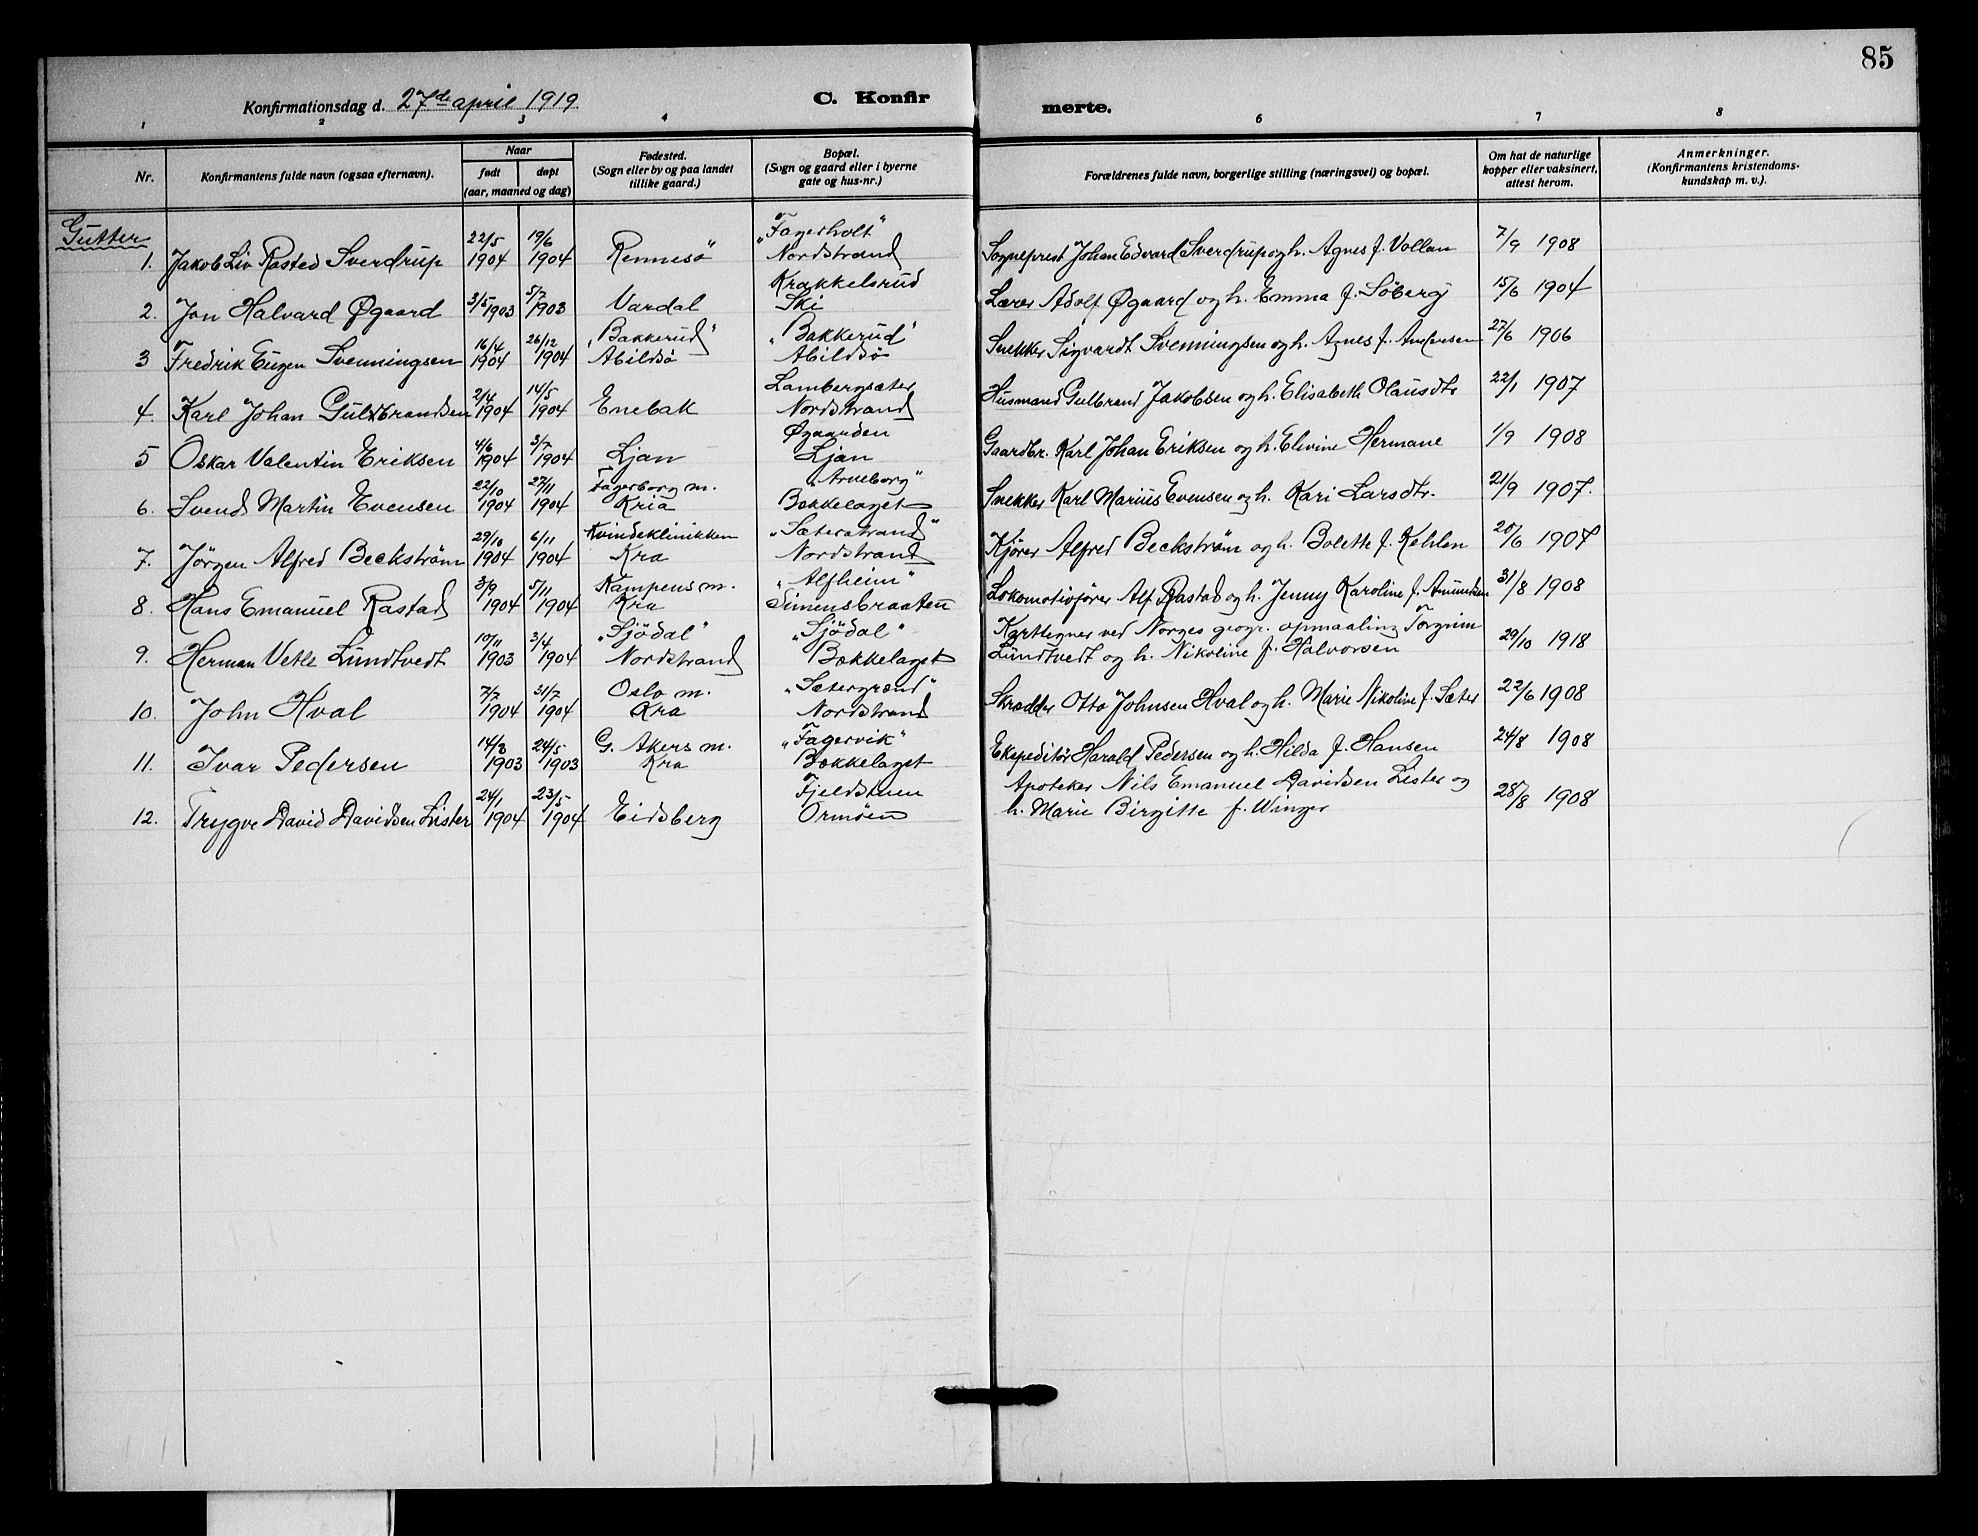 85
Konfirmationsdag d. 27de april 1919
C. Konfir merte.
1 2 3 4 6 7 8
Nr.
Konfirmantens fulde navn (ogsaa efternavn).
Naar
født døpt
(aar, maaned og dag)
Fødested.
(Sogn eller by og paa landet
tillike gaard.)
Bopæl.
(Sogn og gaard eller i byerne
gate og hus-nr.)
Forældrenes fulde navn, borgerlige stilling (næringsvei) og bopæl.
Om hat de naturlige
kopper eller vaksinert,
attest herom.
Anmerkninger.
(Konfirmantens kristendoms-
kundskap m. v.).
Gutter
22/5 19/6 „Fagerholt"
1. Jakob Liv Rosted Sverdrup 1904 1904 Rennesö Nordstrand Sogneprest Johan Edvard Sverdrup og h. Agnes f. Vollan 7/9 1908
Krakkelsrud
2. Jon Halvard Øgaard 3/5 1903 5/7 1903 Vardal Ski Lærer Adolf Øgaard og h. Emma f. Söberg 15/6 1904
16/4 26/12 „Bakkerud" „Bakkerud"
3 Fredrik Eugen Svenningsen 1904 1904 Abildsö Abildsö Snekker Sigvardt Svenningsen og h. Agnes f. 27/6 1906
2/4 14/5 Lambergsæter
4. Karl Johan Gulbrandsen 1904 1904 Enebak Nordstrand Husmand Gulbrand Jakobsen og h. Elisabeth Olausdtr 22/1 1907
4/6 3/7 Øgaarden
5 Oskar Valentin Eriksen 1904 1904 Ljan Ljan Gaardbr. Karl Johan Eriksen og h. Elvine Hermane 1/9 1908
22/10 27/11 Fagerborg m. „Arneborg"
6. Svend Martin Evensen 1904 1904 Kria Bækkelaget Snekker Karl Marius Evensen og h. Kari Larsdtr. 21/9 1907.
29/10 6/11 Kvindeklinikken „Sæterstrand"
7. Jörgen Alfred Beckström 1904 1904 Kra Nordstrand Kjörer Alfred Beckström og h. Bolette f. Kehlen 20/6 1907
3/9 5/11 Kampens m. „Alfheim"
8. Hans Emanuel Rastad 1904 1904 Kra Simensbraaten Lokomotivförer Alf Rastad og h. Jenny Karoline f. Amundsen 31/8 1908
10/11 3/4 „Sjödal" „Sjödal" Karttegner ved Norges geogr. opmaaling Torgrim
9. Herman Vetle Lundtvedt 1903 1904 Nordstrand Bækkelaget Lundtvedt og h. Nikoline f. Halvorsen 29/10 1918
7/7 31/7 Oslo m. „Sætergrænd"
10. John Hval 1904 1904 Kra Nordstrand Skrædder Otto Johnsen Hval og h. Marie Nikoline f. Sæter 22/6 1908
14/3 24/5 G. Akers m. „Fagervik"
11. Ivar Pedersen 1903 1903 Kra Bækkelaget Ekspeditör Harald Pedersen og h. Hilda f. Hansen 24/8 1908
24/1 23/5 Fjeldstuen Apoteker Nils Emanuel Davidsen Lister og
12. Trygve David Davidsen Lister 1904 1904 Eidsberg Ormöen h. Marie Birgitte f. Winger 28/8 1908